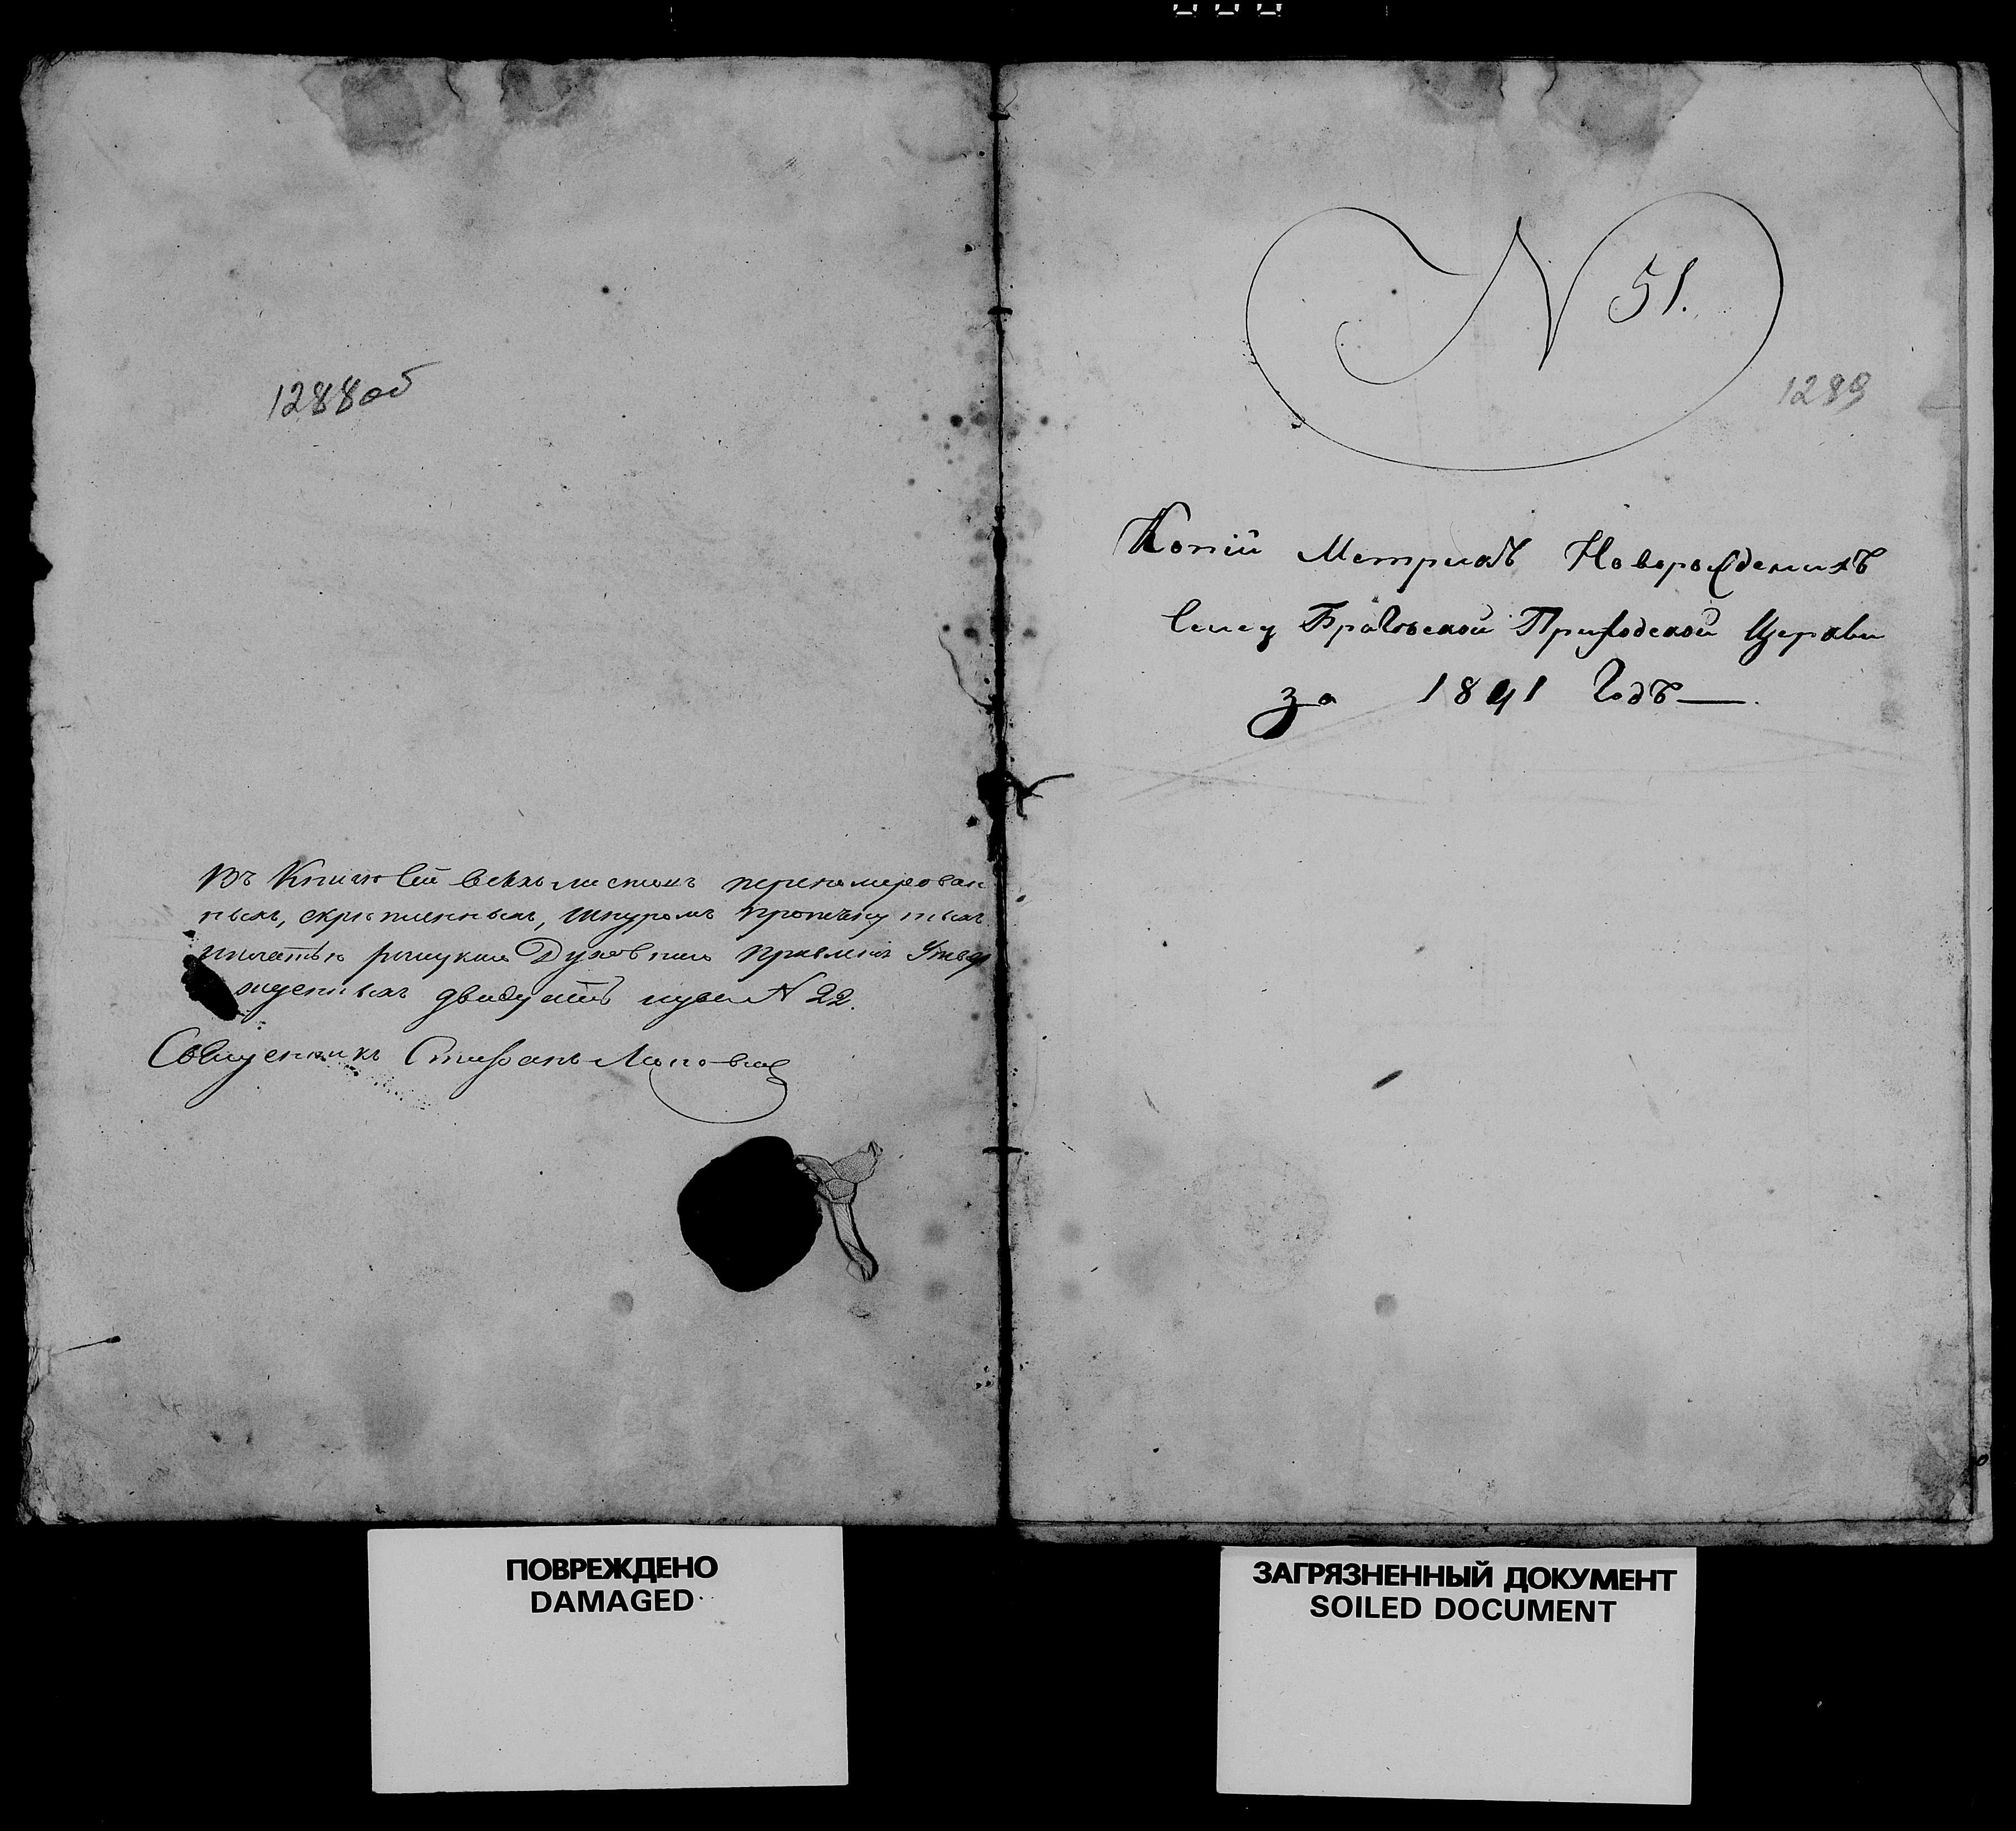 1288об
Въ Книгѣ сей всѣхъ листовъ перенумерован
ныхъ, скрѣпленныхъ, шнуромъ протянутыхъ
печатью Духовнаго Правленія Утвер
жденныхъ двадцать N 22.
Священникъ Стефанъ
N 51.
1289
Копіи Метрикъ Новорожденихъ
Приходской Церкви
за 1841 Годъ —.
ПОВРЕЖДЕНО
DAMAGED
ЗАГРЯЗНЕННЫЙ ДОКУМЕНТ
SOILED DOCUMENT